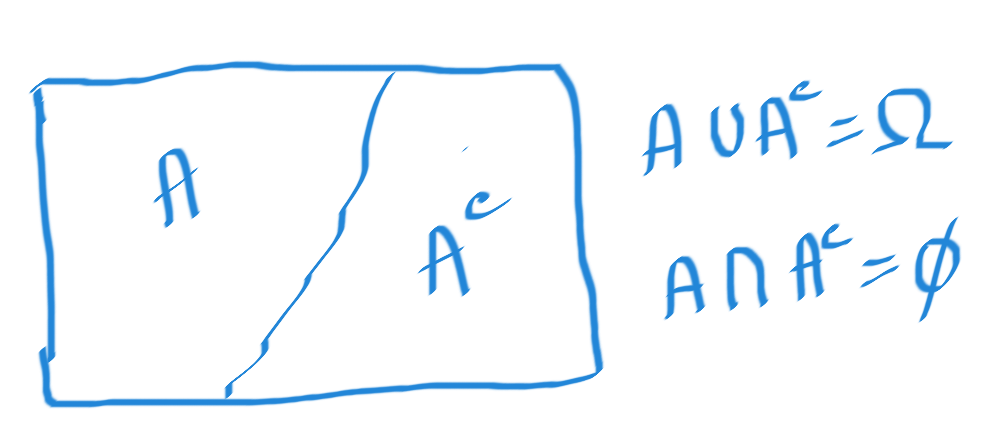 A
A^c
A ∪ A^c = Ω
A ∩ A^c = ϕ